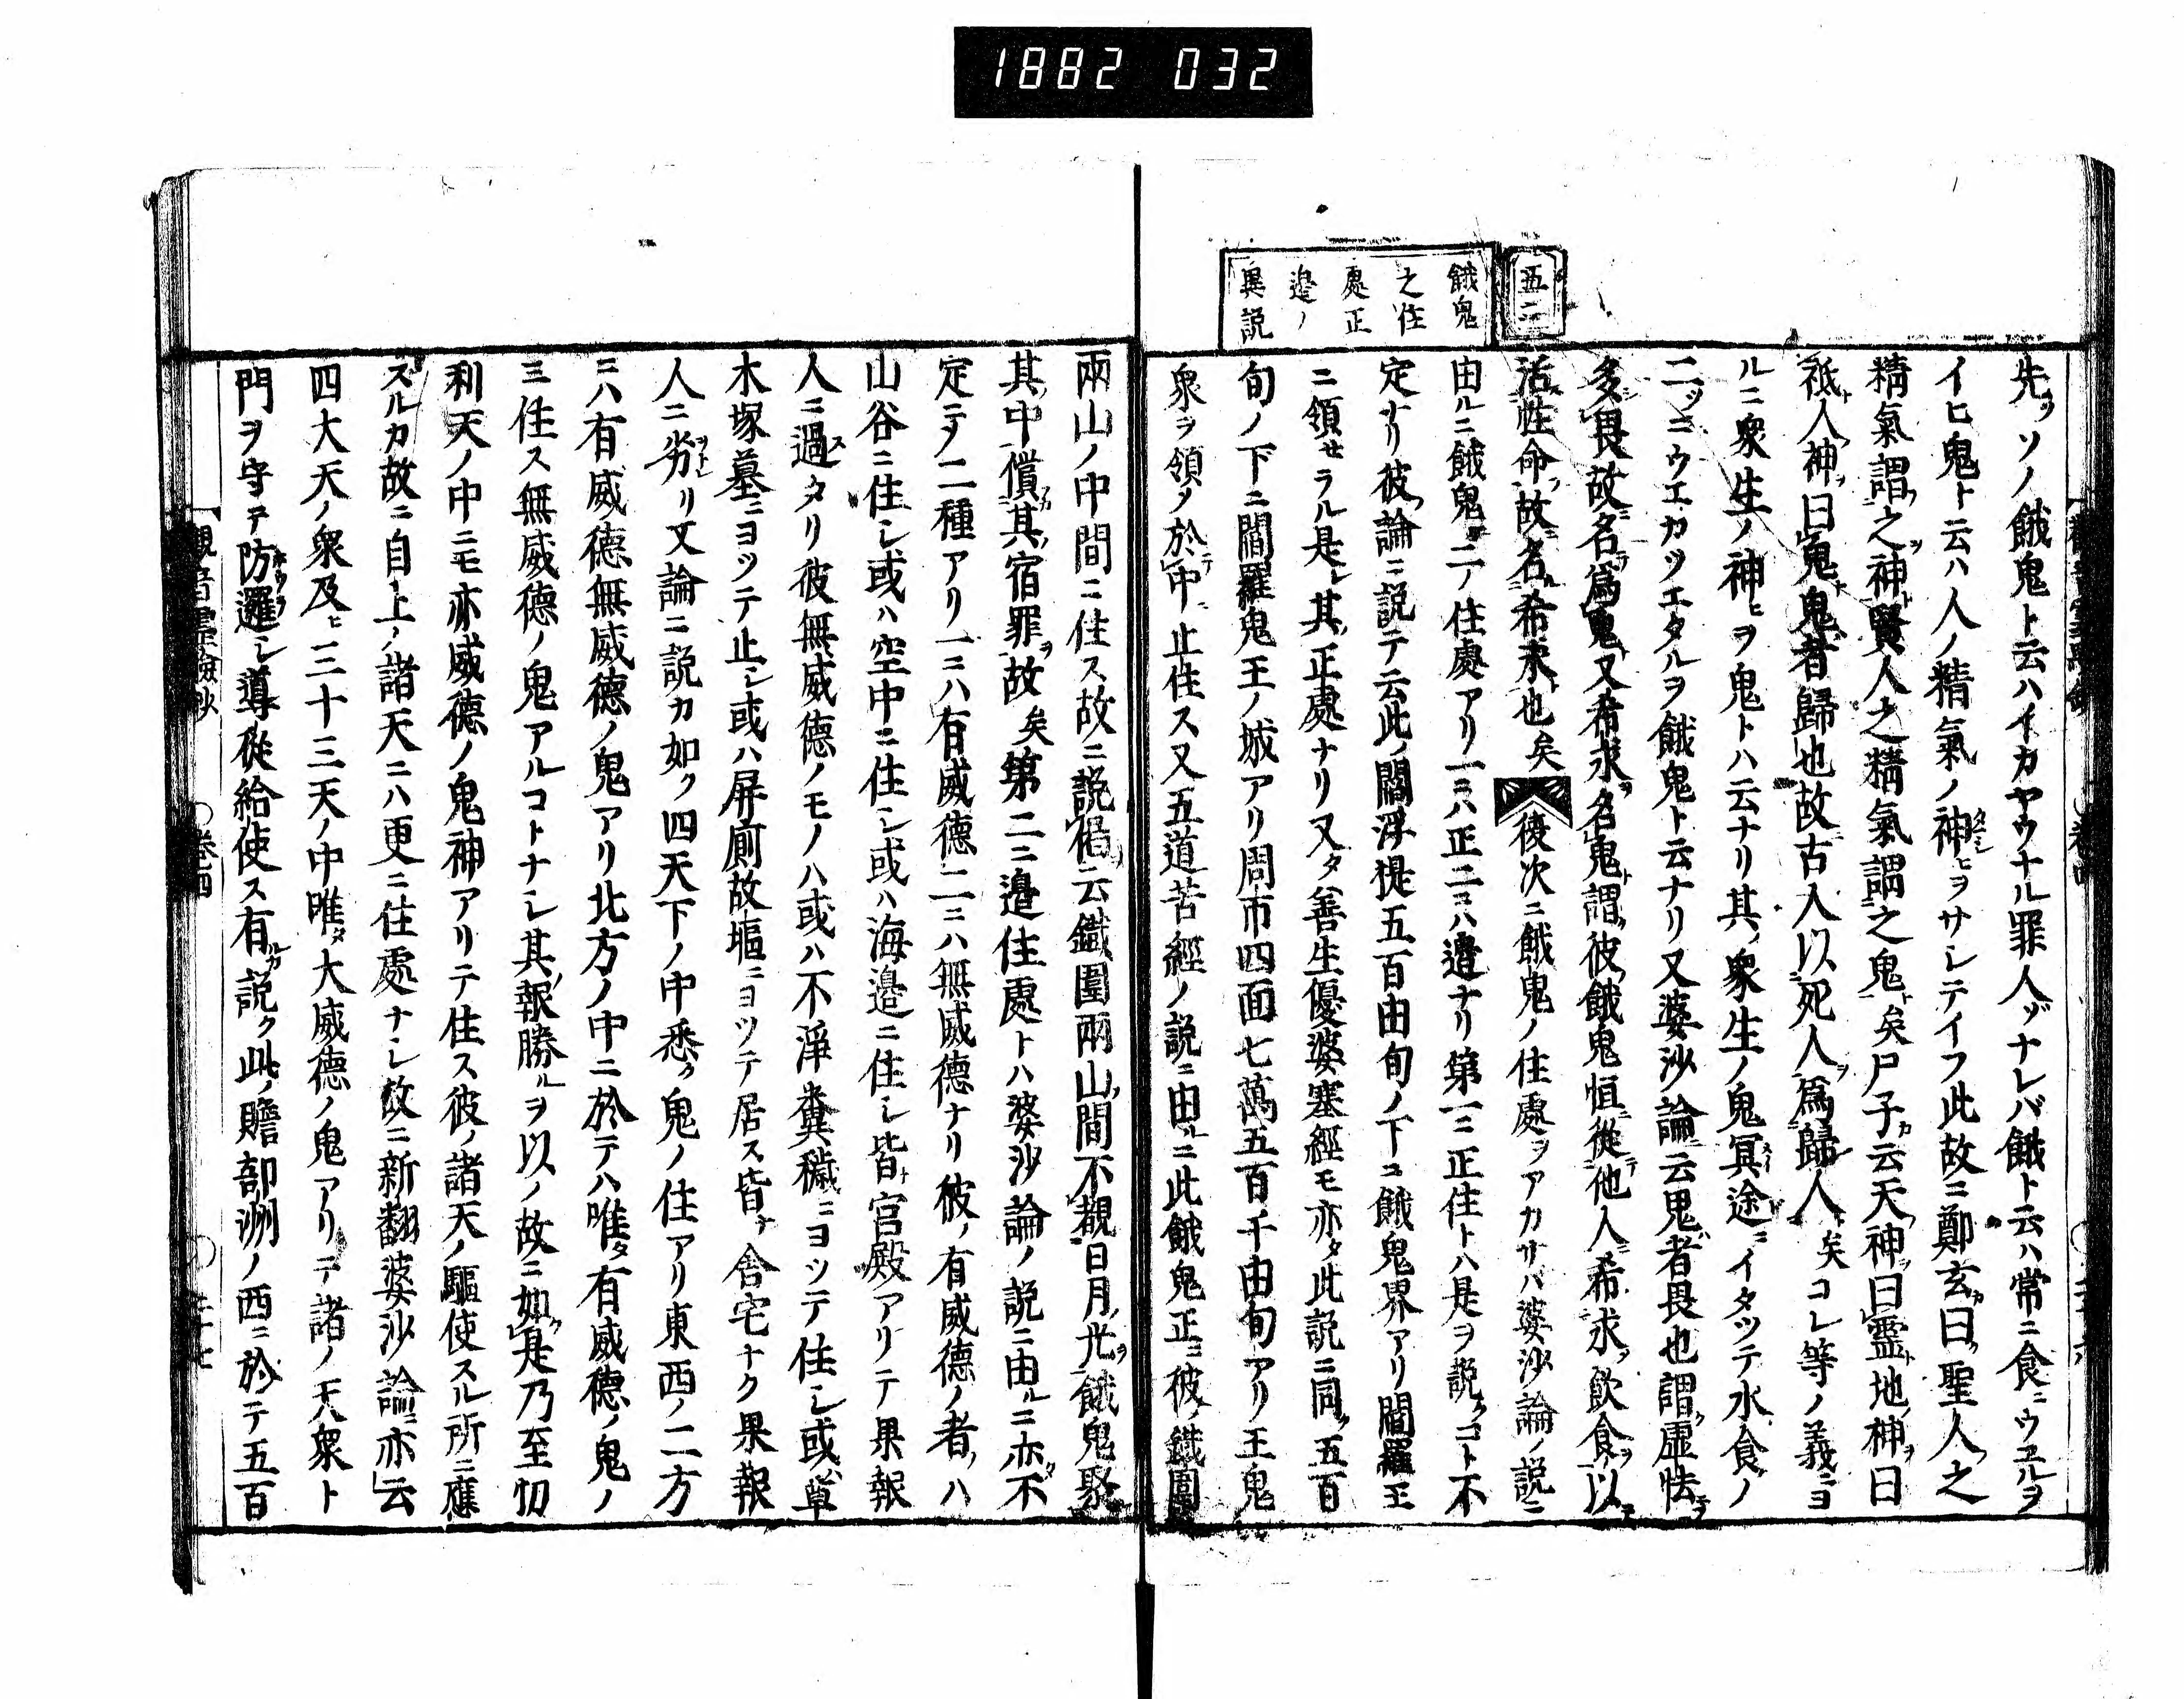 1882 032
五二
餓鬼
之住
處正
邉ノ
異説
先ツソノ餓鬼ト云ハイカヤウナル罪人ゾナレバ餓ト云ハ常ニ食ニウユルヲ
イヒ鬼ト云ハ人ノ精氣ノ神ヒヲサレテイフ此故ニ鄭玄カ曰ク聖人ノ之
精氣謂フ之ヲ神ト賢人之精氣謂之鬼ト矣尸子カ云天神ヲ曰靈ト地神ヲ曰
祇ト人神ヲ曰鬼ト鬼者歸也故古人以死人ヲ爲歸人ト矣コレ等ノ義ニヨ
ルニ衆生ノ神ヒヲ鬼トハ云ナリ其ノ衆生ノ鬼冥途ニイタツテ水食ノ
二ツニウエカツエタルヲ餓鬼ト云ナリ又婆沙論云鬼者畏也謂ク虚怯ニテ
多畏故名テ爲鬼ト又希求ヲ名鬼ト謂ク彼餓鬼恒從テ他人ニ希求ヲ飲食ヲ以テ
活性命ヲ故ニ名希求也矣後次ニ餓鬼ノ住處ヲアカサバ婆沙論ノ説ニ
由ルニ餓鬼ニ二ノ住處アリ一ニハ正二ニハ邉ナリ第一ニ正住トハ是ヲ説クコト不
定ナリ彼論ニ説テ云此ノ閻浮提五百由旬ノ下ニ餓鬼界アリ閻羅王
ニ領セラル是レ其正處ナリ又タ善生優婆塞經モ亦タ此説ニ同ク五百
旬ノ下ニ閻羅鬼王ノ城アリ周帀四面七萬五百千由旬アリ王鬼
衆ヲ領メ於テ中ニ止住ス又五道苦經ノ説ニ由ルニ此餓鬼正ニ彼ノ鐵圍
兩山ノ中間ニ住ス故ニ説偈云鐵圍兩山ノ間不覩日月ノ光ヲ餓鬼聚
其中ニ償其宿罪ヲ故矣第二ニ邉住處トハ婆沙論ノ説ニ由ルニ亦タ不
定ニテ二種アリ一ニハ有威德二ニハ無威德ナリ彼ノ有威德ノ者ノハ
山谷ニ住シ或ハ空中ニ住シ或ハ海邉ニ住シ皆ナ宮殿アリテ果報
人ニ過スタリ彼無威德ノモノハ或ハ不淨糞穢ニヨツテ住シ或ハ草
木塚墓ニヨツテ止シ或ハ屏廁故塸ニヨツテ居ス皆ナ舍宅ナク果報
人ニ劣リ又論ニ説カ如ク四天下ノ中悉ク鬼ノ住アリ東西ノ二方
ニハ有威德無威德ノ鬼アリ北方ノ中ニ於テハ唯タ有威德ノ鬼ノ
ミ住ス無威德ノ鬼アルコトナシ其報勝ルヲ以ノ故ニ如是乃至忉
利天ノ中ニモ亦威德ノ鬼神アリテ住ス彼ノ諸天ノ驅使スル所ニ應
スルカ故ニ自上ノ諸天ニハ更ニ住處ナシ故ニ新翻婆沙論ニ亦云
四大天ノ衆及ヒ三十三天ノ中唯タ大威德ノ鬼アリテ諸ノ天衆ト
門ヲ守テ防邏シ導從給使ス有ルカ説ク此ノ贍部洲ノ西ニ於テ五百
觀音靈驗抄 ○巻四 ○ 三十七